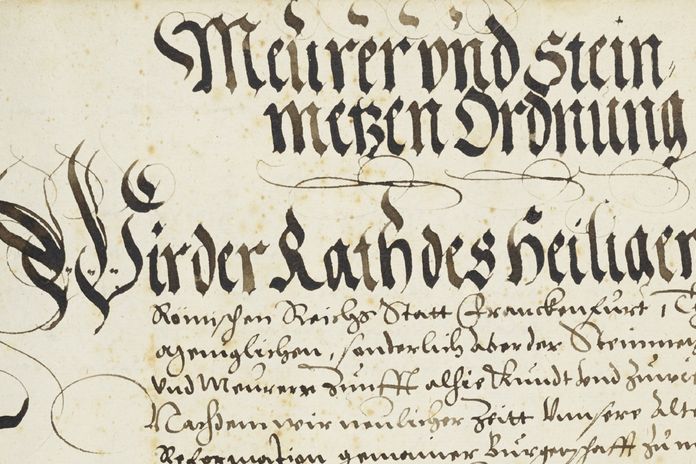 Meurer vnd Stein⸗
metzen Ordnung
Wir der Rath des Heiligen
Römischen Reichs Statt Franckenfurt
sonderlich aber der Steinmetz
vnd Meurer Zunfft alhie Kundt vnd Zuwi
Nachdem wir neulicher Zeitt Vnnsere Alte
Reformation gemainer Burgerschafft Zu